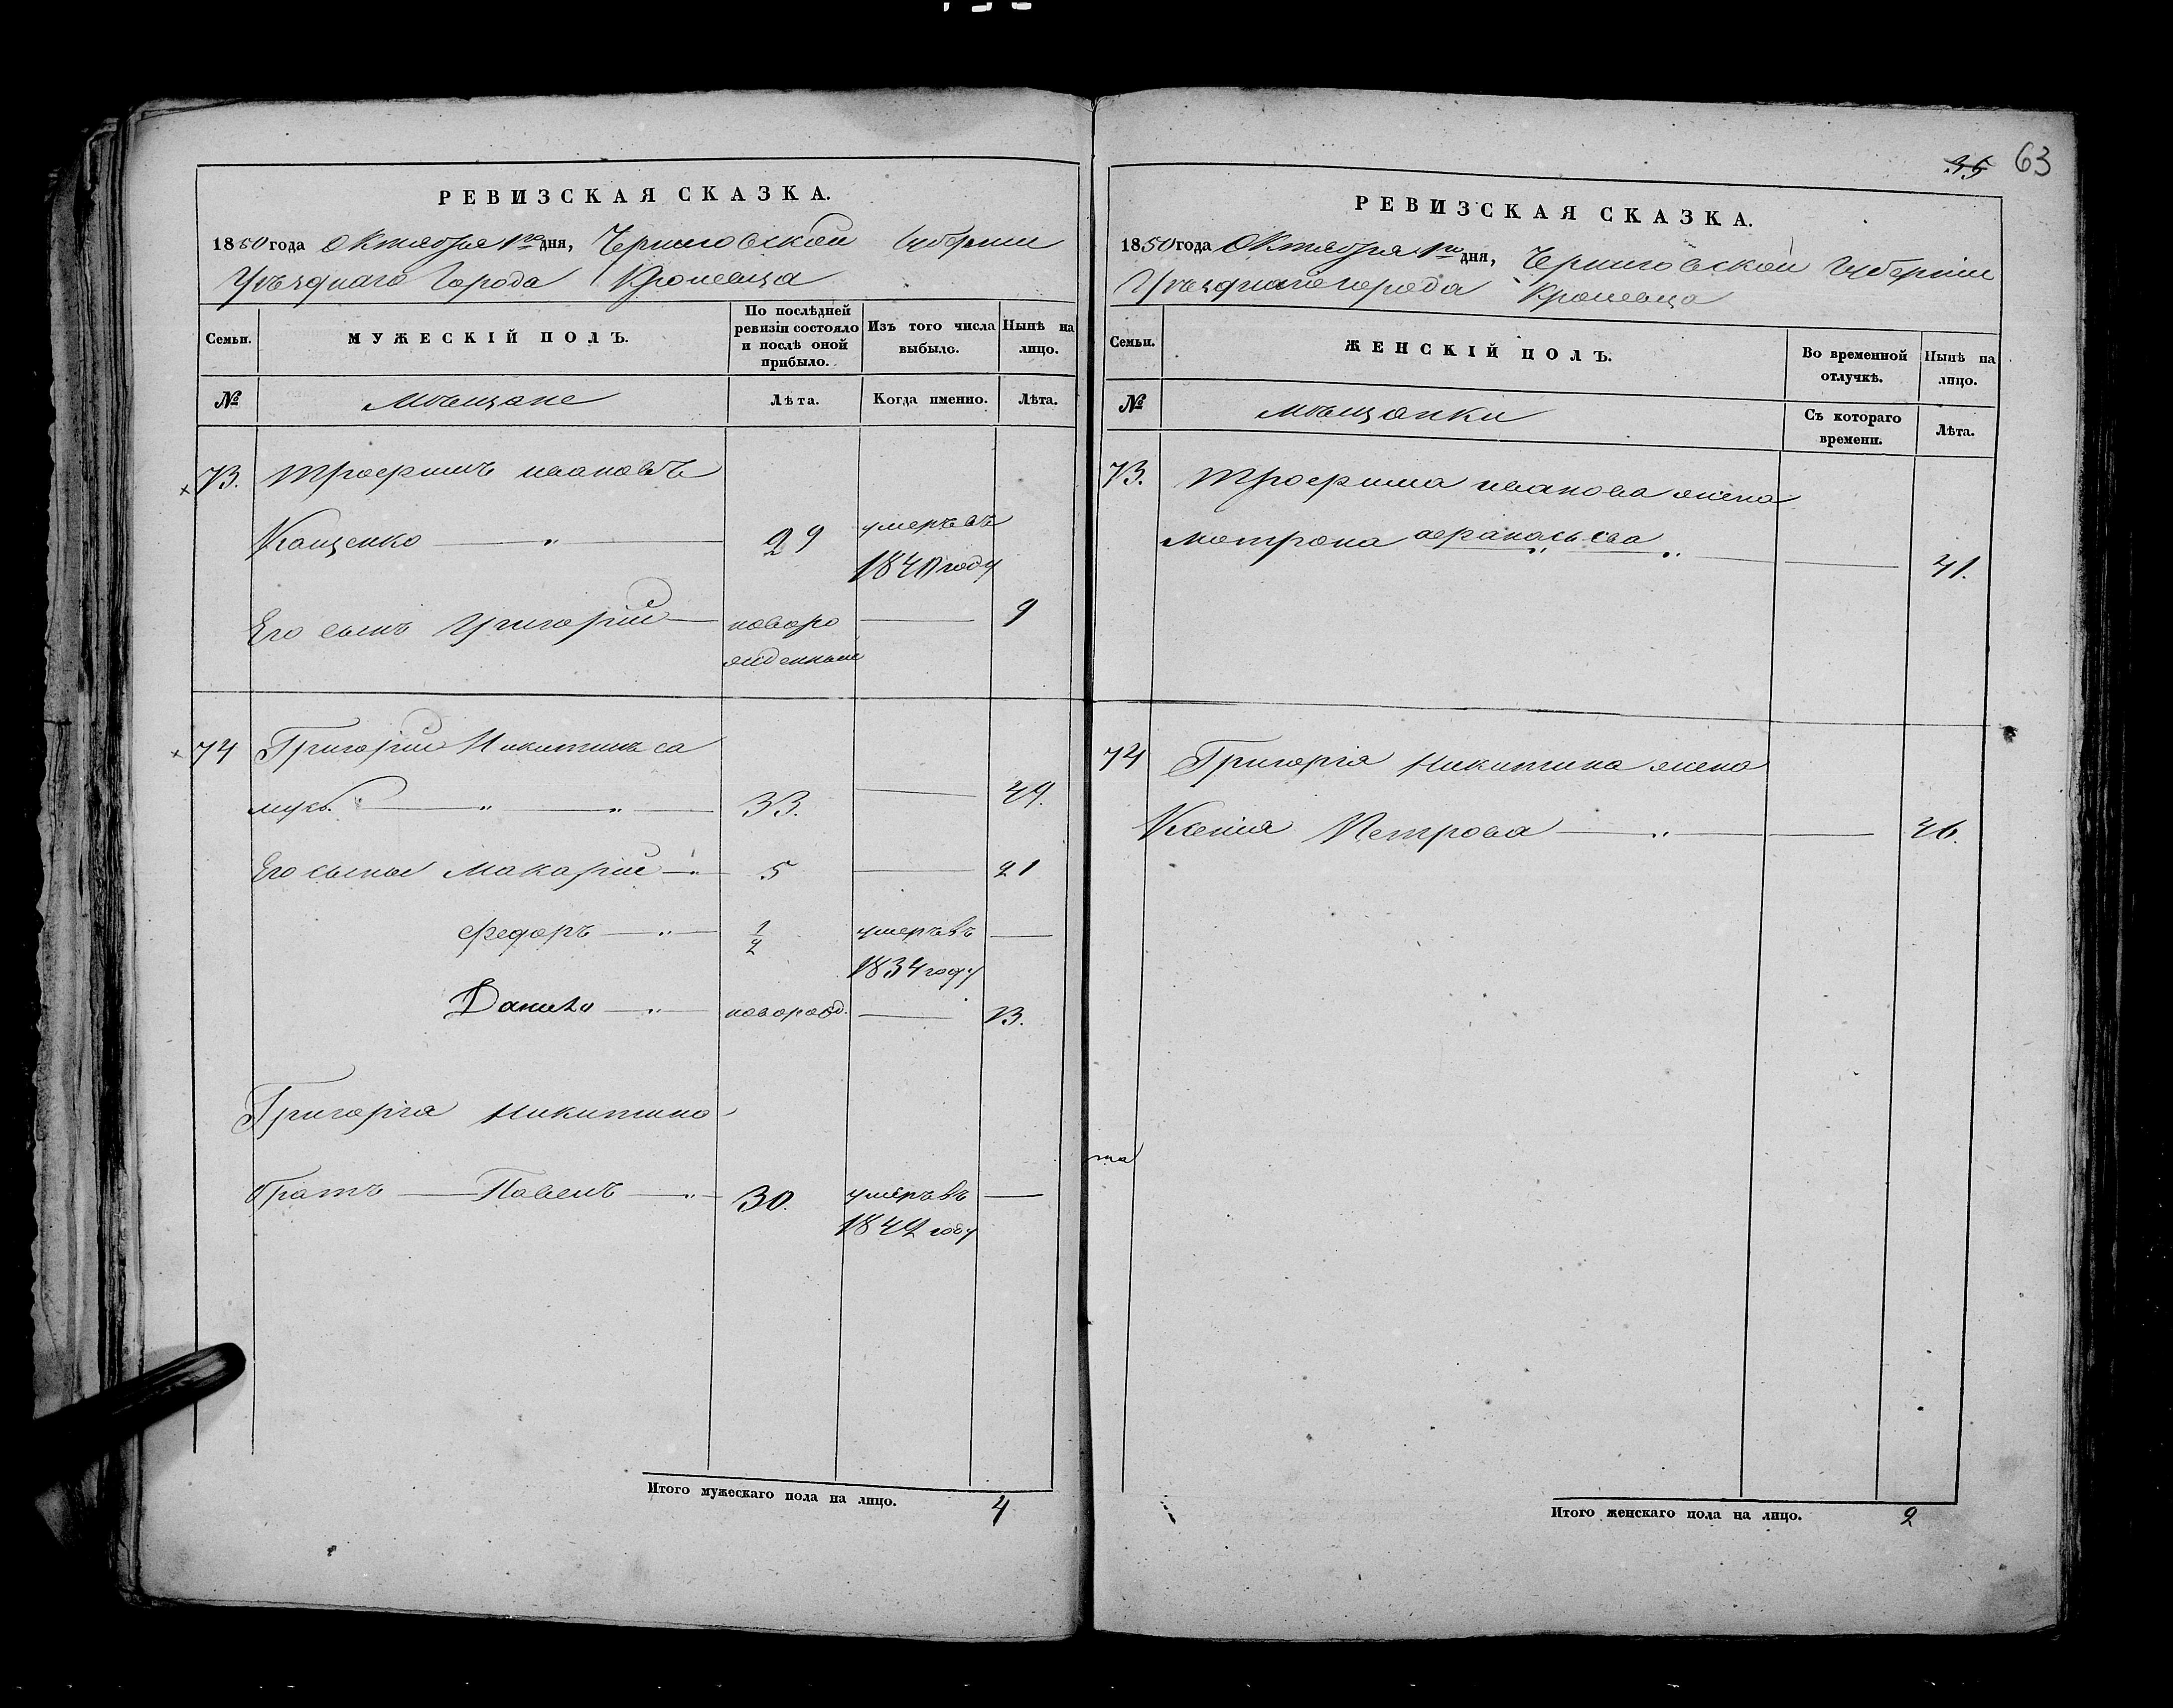 35 63
РЕВИЗСКАЯ СКАЗКА.
1850 года Октября 1го дня, Черниговской Губернии
Уѣзднаго Города Кролевца
Семьи. МУЖЕСКІЙ ПОЛЪ. По послѣдней ревизіи состояло и послѣ оной прибыло. Изъ того числа выбыло. Нынѣ на лицо.
№ Мѣщане Лѣта. Когда именно. Лѣта.
73. Трофимъ Ивановъ
Кащенко 29 умеръ въ
1840 году
Его сынъ Григорій новоро 9
жденный
74 Григорій Никитинъ
33. 49.
Его сыны Макарій 5 21
Федоръ 1/2 умеръ въ
1834 году
Данило новорожд. 13.
Григорія Никитина
братъ Павелъ 30. умеръ въ
1842 году
Итого мужескаго пола на лицо. 4
РЕВИЗСКАЯ СКАЗКА.
1850 года Октября 1го дня, Черниговской Губерніи
Уѣзднаго города Кролевца
Семьи. ЖЕНСКІЙ ПОЛЪ. Во временной отлучкѣ. Нынѣ на лицо.
№ Мѣщанки Съ котораго времени. Лѣта.
73. Трофима Иванова жена
Мотрона Афанасьева 41.
74 Григорія Никитина жена
Ксенія Петрова 46.
Итого женскаго пола на лицо. 2